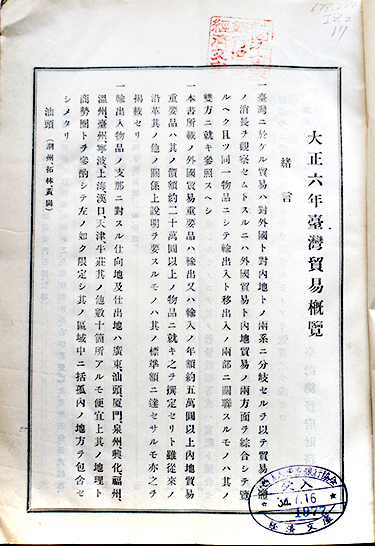 大正六年臺灣貿易概覽
緒言
一臺灣ニ於ケル貿易ハ對外國ト對内地トノ兩系ニ分岐セルヲ以テ貿易
ノ消長ヲ觀察セムトスルニハ外國貿易ト内地貿易ノ兩方面ヲ綜合シテ覽
ルヘク且ツ同一物品ニシテ輸出入ト移出入ノ兩部ニ關聯スルモノハ其ノ
雙方ニ就キ參照スヘシ
一本書所載ノ外國貿易重要品ハ輸出又ハ輸入ノ年額約五萬圓以上内地貿易
重要品ハ其ノ價額約二十萬圓以上ノ物品ニ就キ之ヲ撰定セリト雖從來ノ
沿革其ノ他ノ關係上說明ヲ要スルモノハ其ノ標準額ニ達セサルモ亦之ヲ
揭載セリ
一輸出入物品ノ支那ニ對スル仕向地及仕出地ハ廣東、汕頭、厦門、泉州、興化、福州、
溫州、臺州、寧波、上海、漢口、天津、牛莊其ノ他數十箇所アルモ便宜上其ノ地理ト
商勢圈トヲ參酌シテ左ノ如ク限定シ其ノ區域中ニ括弧内ノ地方ヲ包含セ
シメタリ
汕頭（潮州、拓林、黃岡）
17
34.7.16
1977
經濟文庫